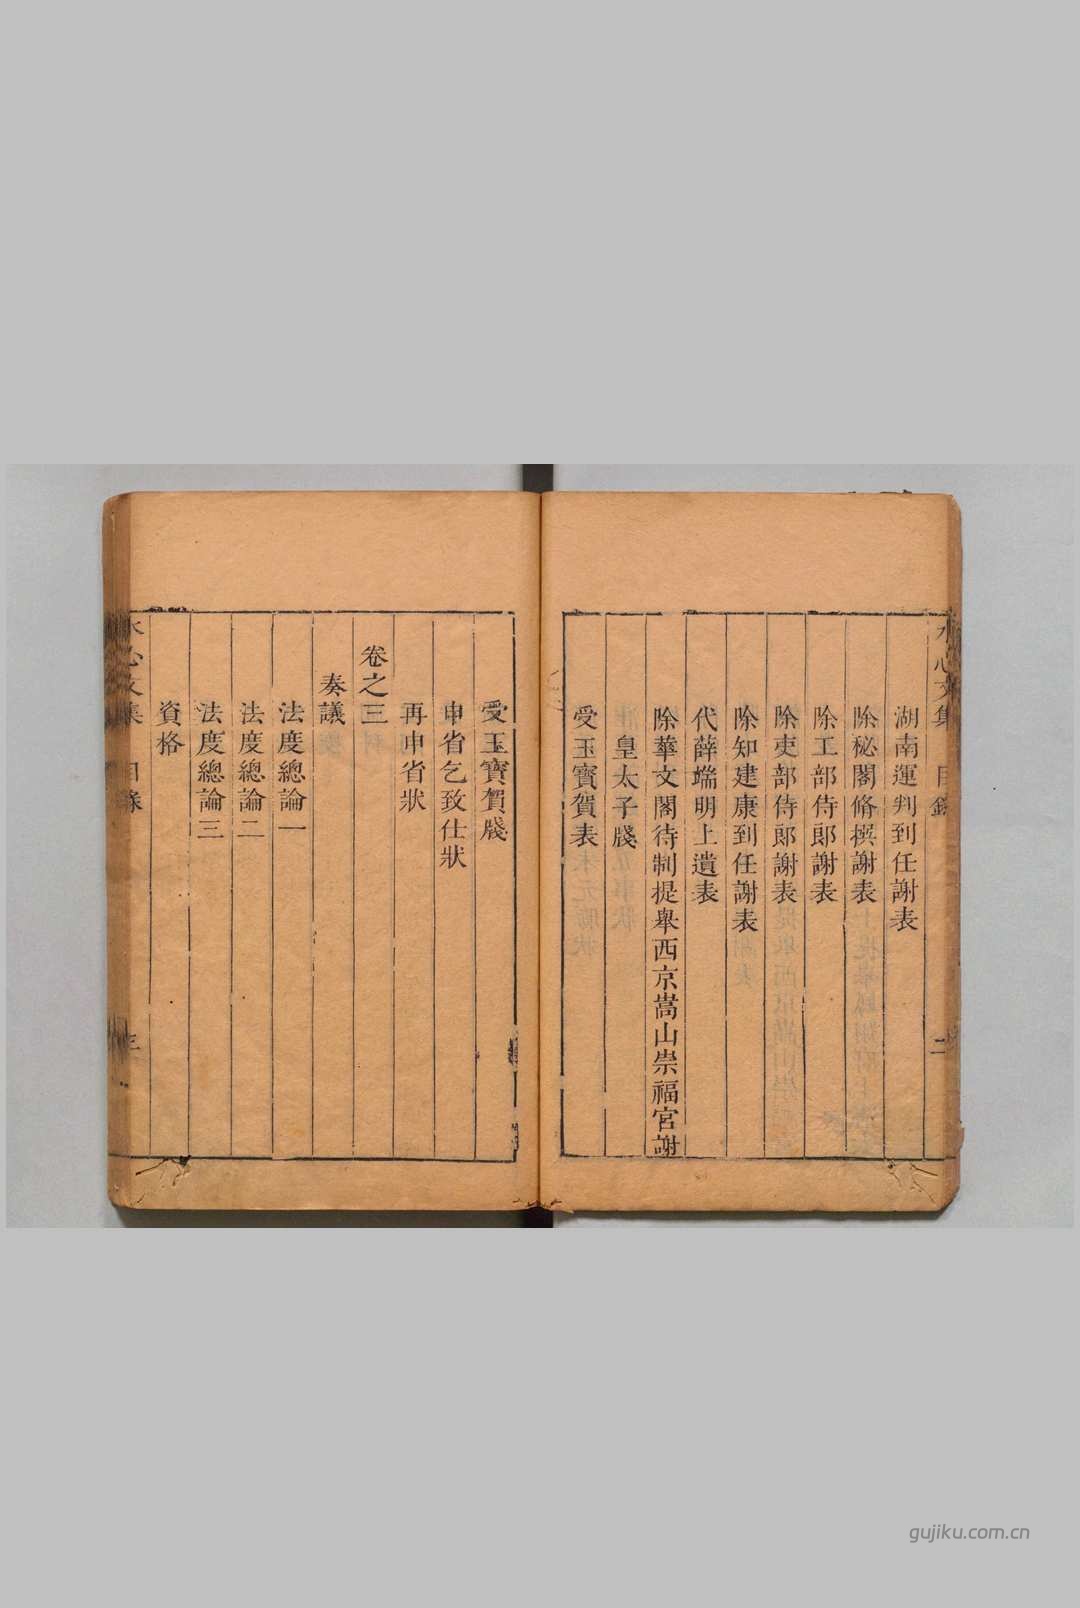 湖南運判到任謝表
除秘閣脩撰謝表
除工部侍郎謝表
除吏部侍郎謝表
除知建康到任謝表
代薛端明上遺表
除華文閣待制提舉西京嵩山崇福宮謝
皇太子牋
受玉寶賀表
受玉寶賀牋
申省乞致仕狀
再申省狀
卷之三
奏議
法度總論一
法度總論二
法度總論三
資格
水心文集 目錄
三
gujiku.com.cn